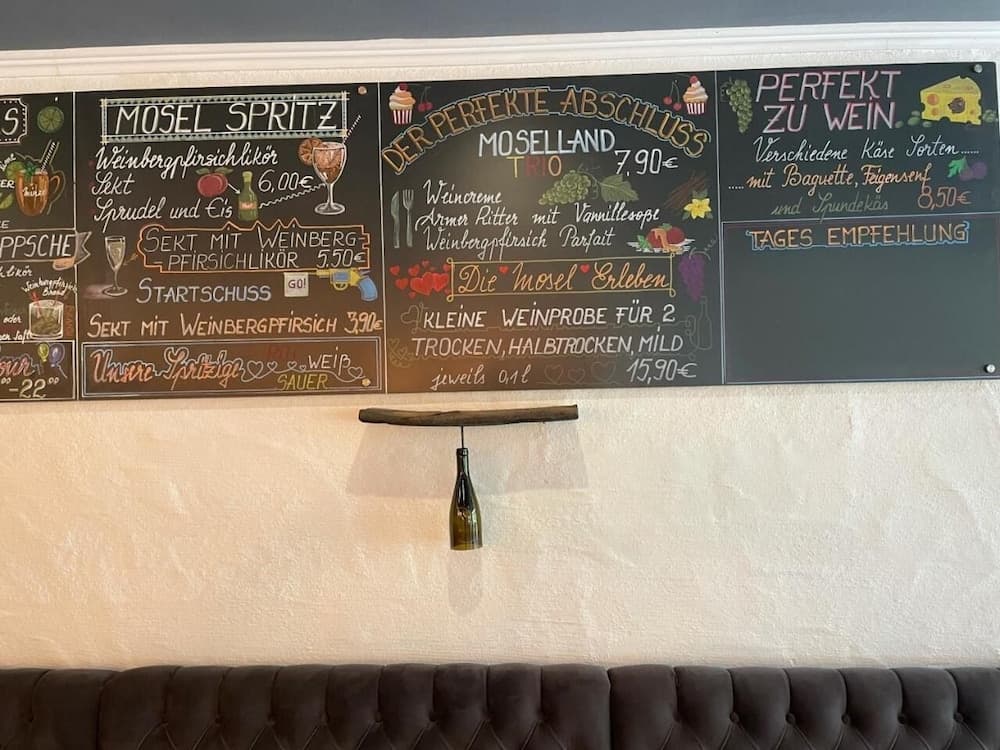 S
PPSCHE
hlikör
oder
-22
MOSEL SPRITZ
Weinbergpfirsichlikör
Sekt
6,00€
Sprudel und Eis
SEKT MIT WEINBERG-
-PFIRSICHLIKÖR 5,50€
STARTSCHUSS GO!
SEKT MIT WEINBERGPFIRSICH 3,90€
Unsere Spritzige WEIß
SAUER
DER PERFEKTE ABSCHLUSS
MOSELLAND
TRIO 7,90€
Weincreme
Armer Ritter mit Vannillesoße
Weinbergpfirsich Parfait
Die Mosel Erleben
KLEINE WEINPROBE FÜR 2
TROCKEN, HALBTROCKEN, MILD
jeweils 0,1l 15,90€
PERFEKT
ZU WEIN
Verschiedene Käse Sorten......
.... mit Baguette, Feigensenf
und Spundekäs 8,50€
TAGES EMPFEHLUNG